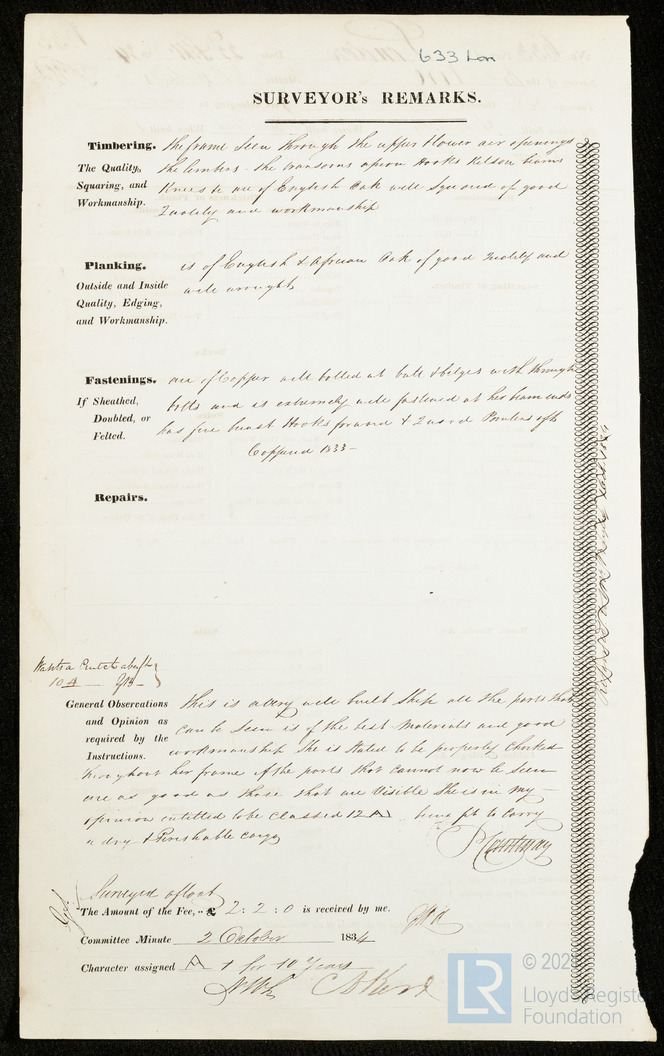 633 Lon
SURVEYOR's REMARKS.
Timbering. the frame seen through the upper & lower air openings
The Quality, Squaring, and Workmanship.
the timbers the transoms apron Hooks Kelson beams
Knees &c are of English Oak well Squared of good
Quality and workmanship
Planking. is of English & African Oak of good Quality and
Outside and Inside Quality, Edging, and Workmanship.
well wrought
Fastenings. are of Copper well bolted at butt & bilges with through
If Sheathed, Doubled, or Felted.
bolts and is extremely well fastened at her beam ends
has five breast Hooks forward & 2 and Pointers aft
Coppered 1833
Repairs.
10 A
General Observations and Opinion as required by the Instructions.
this is a very well built Ship all the parts that
can be seen is of the best materials and good
workmanship She is Stated to be properly Chocked
throughout her frame if the parts that cannot now be seen
are as good as those that are Visible She is in my
opinion entitled to be Classed 12 A being fit to Carry
a dry & Perishable cargo
P Courtenay
Surveyed afloat
The Amount of the Fee, £ 2 : 2 : 0 is received by me.
Committee Minute 2 October 1834
Character assigned A 1 for 10 Years
LR
© 202
Lloyd's Register
Foundation